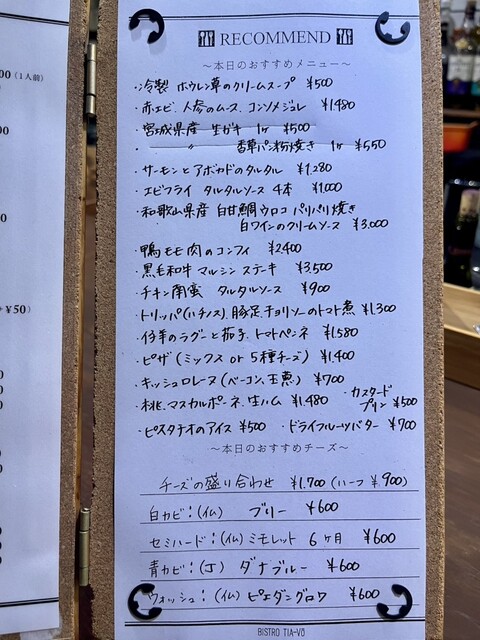 00 (1人前)
00
+¥50)
RECOMMEND
～本日のおすすめメニュー～
・冷製 ホウレン草のクリームスープ ¥500
・赤エビ、人参のムース、コンソメジュレ ¥1,480
・宮城県産 生ガキ 1ヶ ¥500
・ 〃 香草パン粉焼き 1ヶ ¥550
・サーモンとアボカドのタルタル ¥1,280
・エビフライ タルタルソース 4本 ¥1,000
・和歌山県産 白甘鯛ウロコ パリパリ焼き
白ワインのクリームソース ¥3,000
・鴨モモ肉のコンフィ ¥2,400
・黒毛和牛 マルシン ステーキ ¥3,500
・チキン南蛮 タルタルソース ¥900
・トリッパ(ハチノス)、豚足、チョリソーのトマト煮 ¥1,300
・仔羊のラグーと茄子、トマトペンネ ¥1,580
・ピザ (ミックス or 5種チーズ) ¥1,400
・キッシュロレーヌ (ベーコン、玉葱) ¥700
・桃、マスカルポーネ、生ハム ¥1,480
・カスタード
プリン ¥500
・ピスタチオのアイス ¥500 ・ドライフルーツバター ¥700
～本日のおすすめチーズ～
チーズの盛り合わせ ¥1,700 (ハーフ ¥900)
白カビ：(仏) ブリー ¥600
セミハード：(仏) ミモレット 6ヶ月 ¥600
青カビ：(丁) ダナブルー ¥600
ウォッシュ：(仏) ピエダングロワ ¥600
BISTRO TIA-VO